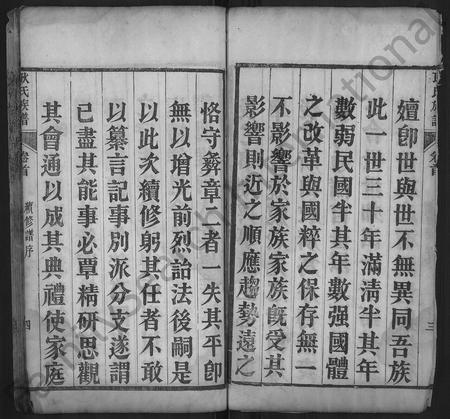 嬗卽世與世不無異同吾族
此一世三十年滿淸半其年
數弱民國半其年數強國體
之改革與國粹之保存無一
不影響於家族家族旣受其
影響則近之順應趨勢遠之
三
恪守彝章二者一失其平卽
無以增光前烈詒法後嗣是
以此次續修躬其任者不敢
以纂言記事別派分支遂謂
己盡其能事必覃精研思觀
其會通以成其典禮使家庭
氏族譜
卷首
續修譜序
四